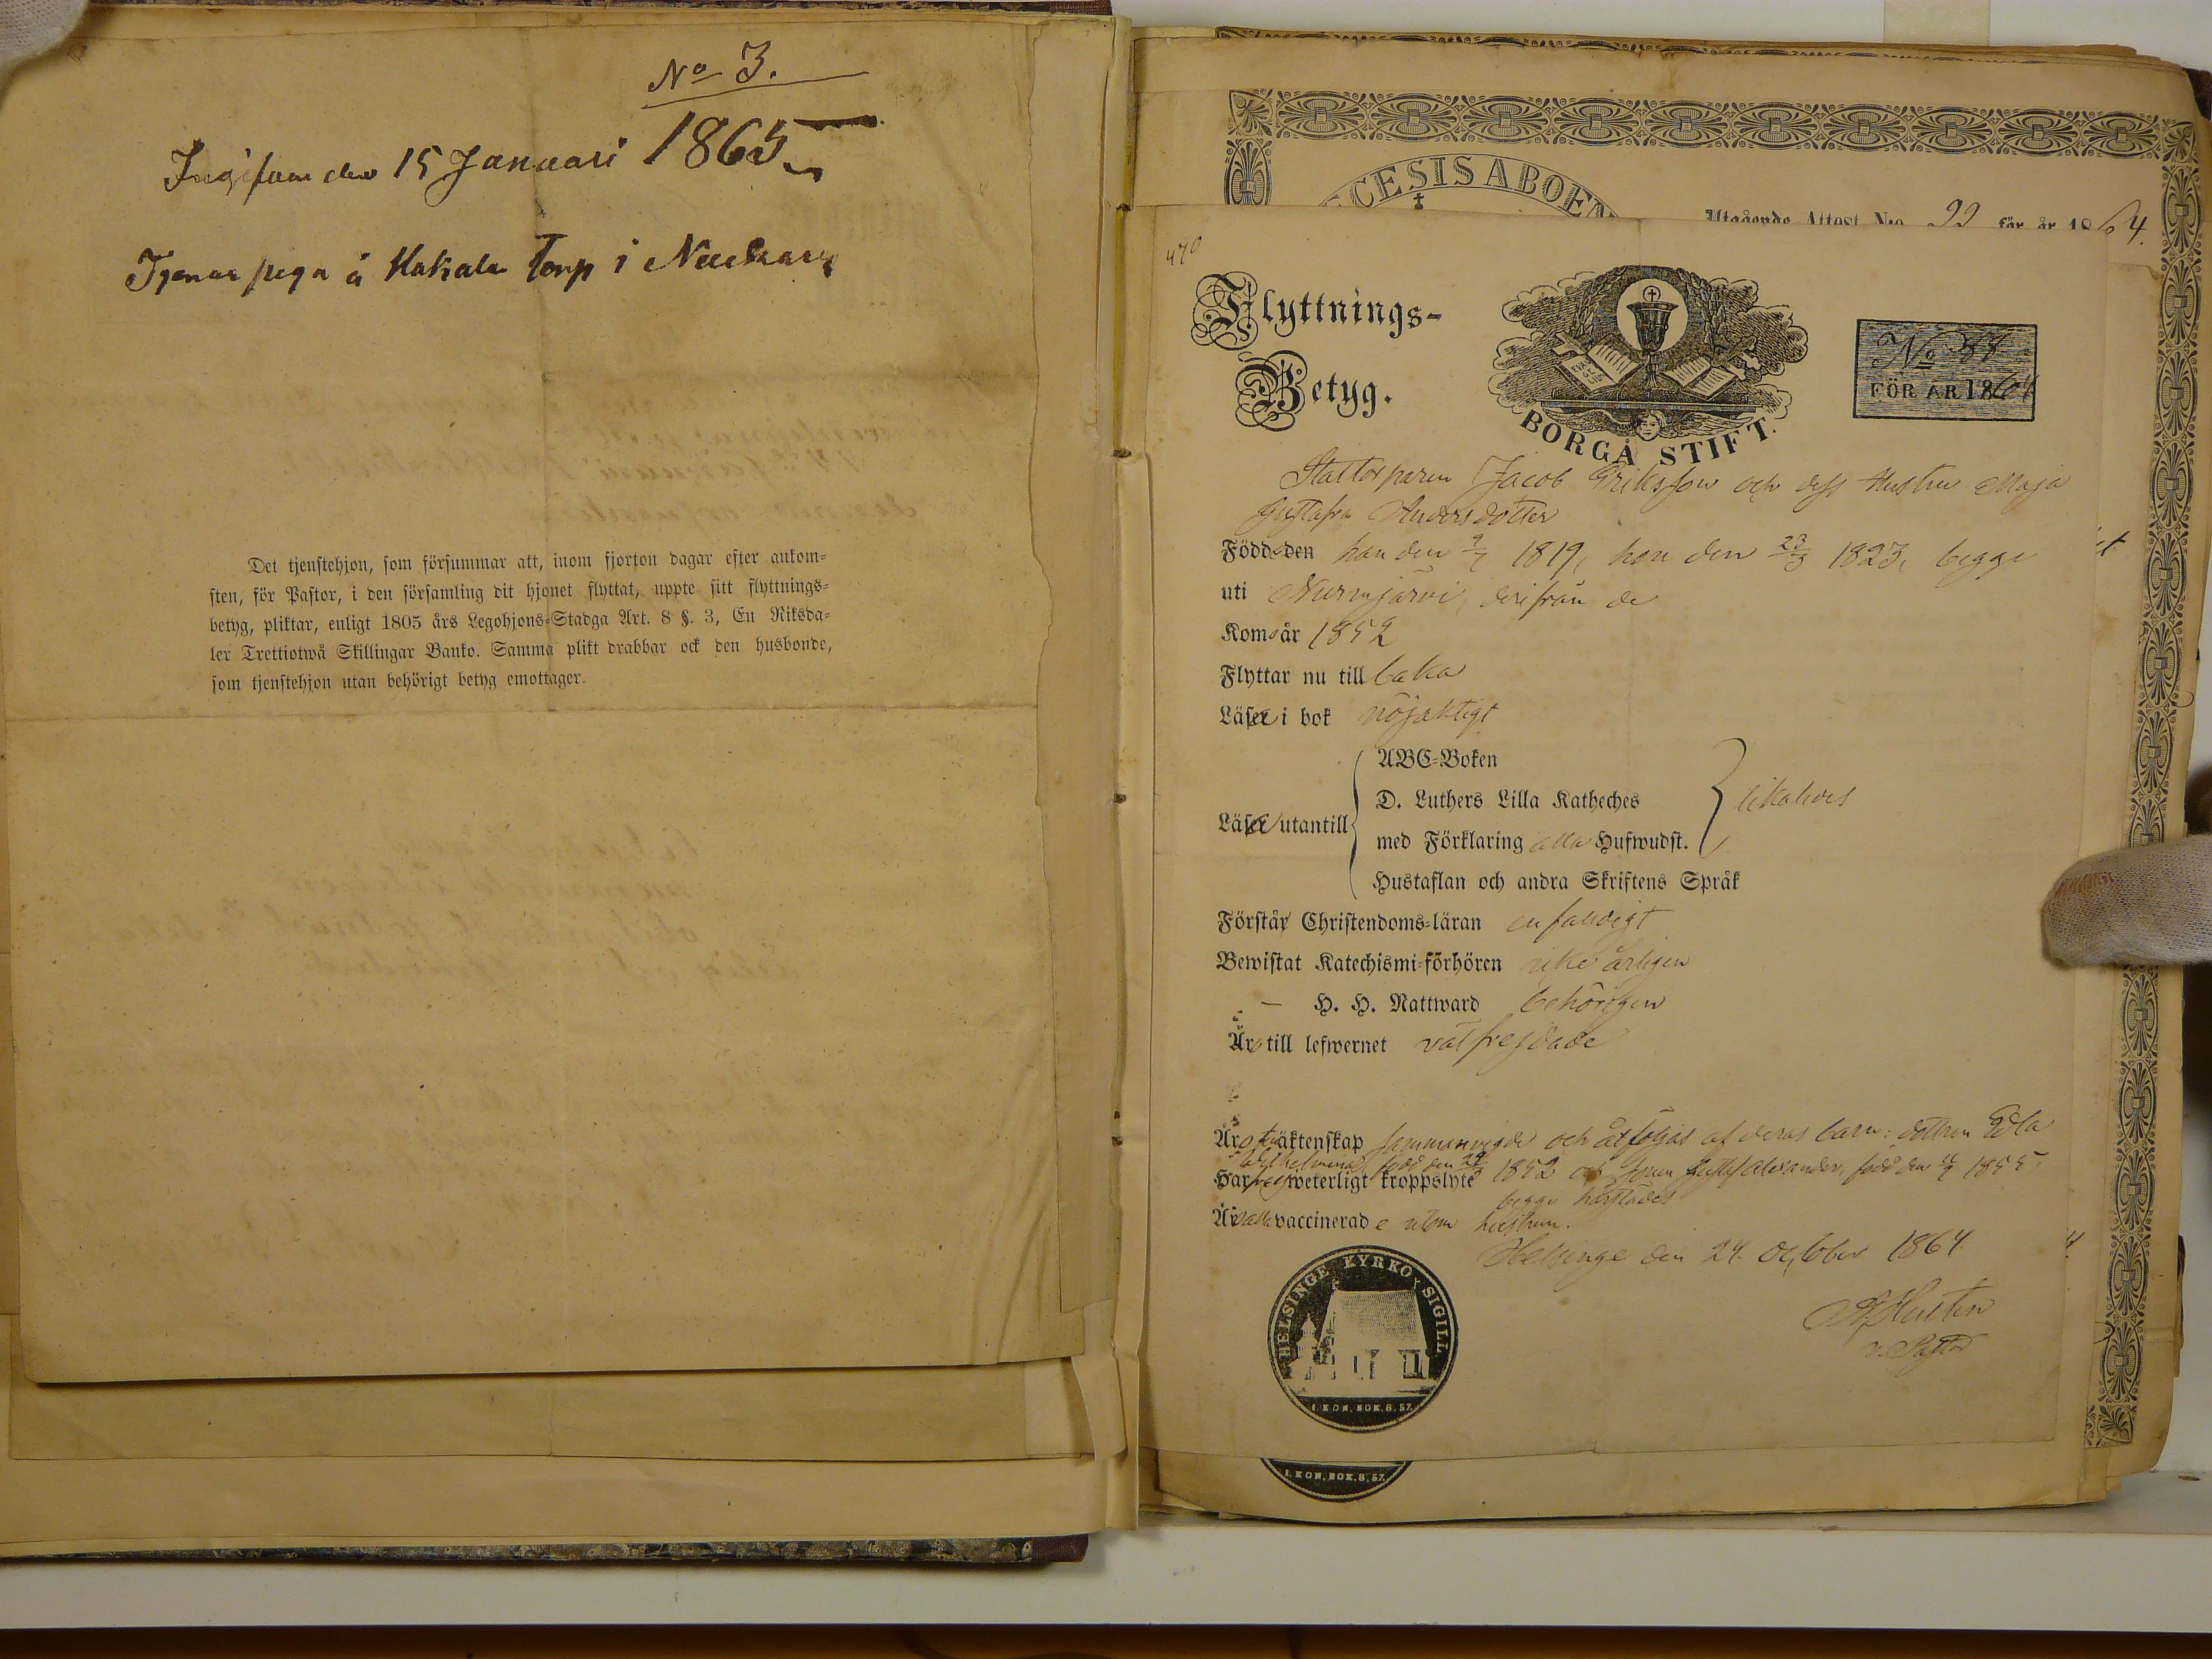 No 3.
Ingifven den 15 Januari 1865
Tjenar piga å Hakala Torp i Nuckari
Det tjenstehjon, som försummar att, inom fjorton dagar efter ankom-
sten, för Pastor, i den församling dit hjonet flyttat, uppte sitt flyttnings-
betyg, pliktar, enligt 1805 års Legohjons-Stadga Art. 8 §. 3, En Riksda-
ler Trettiotwå Skillingar Banko. Samma plikt drabbar ock den husbonde,
som tjenstehjon utan behörigt betyg emottager.
CESIS ABOEN
Utgående Attest N:o 22 för år 1864.
470
Flyttnings-
Betyg.
BORGÅ STIFT.
No 88
FÖR ÅR 1864
Stattorparen Jacob Eriksson och dess Hustru Maja
Gustafva Andersdotter
Född den han den 1819, hon den 23/3 1823, begge
uti Nurmijärvi, derifrån de
Kom år 1852
Flyttar nu till baka
Läse i bok nöjaktigt
ABC-Boken
D. Luthers Lilla Katheches
likaledes
Läse utantill
med Förklaring alla Hufwudst.
Hustaflan och andra Skriftens Språk
Förstår Christendoms-läran enfaldigt
Bewistat Katechismi-förhören icke årligen
— H. H. Nattward behörigen
Äro till lefwernet välfrejdade
Äro äktenskap sammanvigde och åtföljas af deras barn: dottren Edla
Wilhelmina, född den 29 1852 och sonen Gustaf Alexander, född den 1855,
Har weterligt kroppslyte
begge härstädes
Är alla vaccinerade utom hustrun.
Helsinge den 24 October 1864.
HELSINGE KYRKO SIGILL
1. KON. BOK. 8. 57.
v. Pastor
1. KON. BOK. 8. 57.